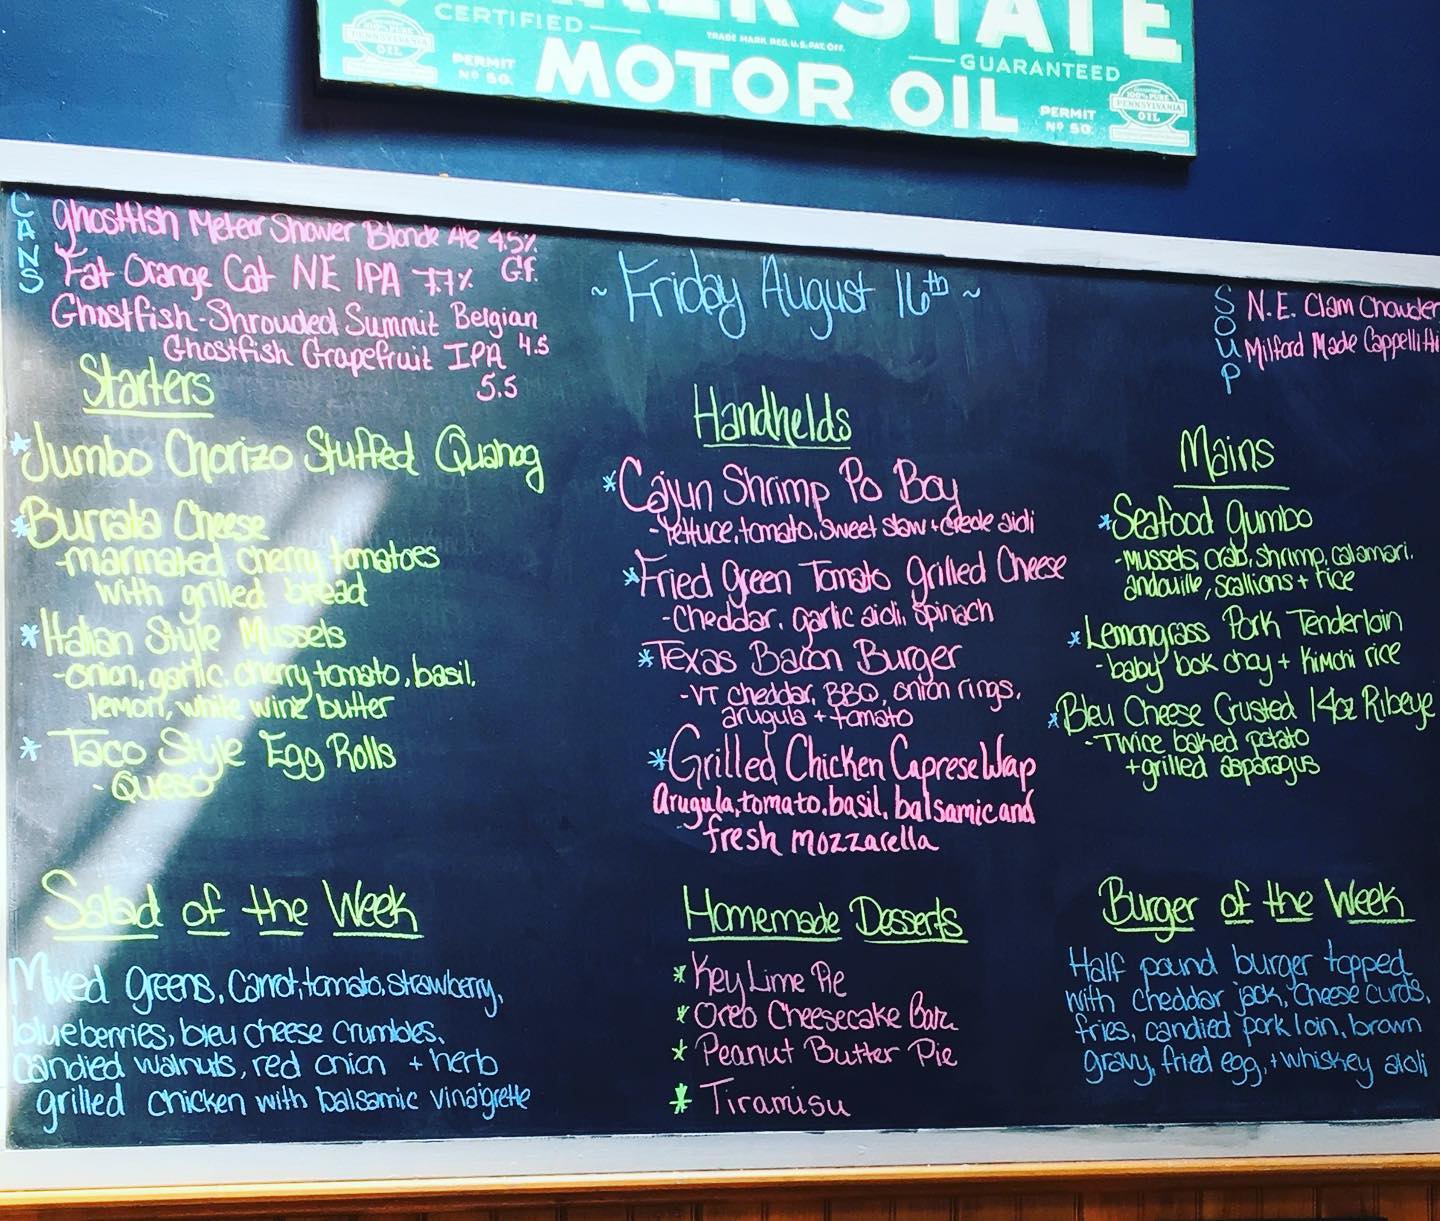 STATE
CERTIFIED
TRADE MARK REG. U.S. PAT. OFF.
GUARANTEED
100% PURE
PENNSYLVANIA
OIL
PERMIT
Nº 50.
MOTOR OIL
PERMIT
Nº 50.
100% PURE
PENNSYLVANIA
OIL
CANS
Ghostfish Meteor Shower Blonde Ale 4.5%
G.F.
Fat Orange Cat NE IPA 7.7%
Ghostfish-Shrouded Summit Belgian
4.5
Ghostfish Grapefruit IPA
5.5
~ Friday August 16th ~
SOUP
N.E. Clam Chowder
Milford Made Cappelitti
Starters
*Jumbo Chorizo Stuffed Quahog
*Burrata Cheese
-marinated cherry tomatoes
with grilled bread
*Italian Style Mussels
-onion, garlic, cherry tomato, basil,
lemon, white wine butter
*Taco Style Egg Rolls
-Queso
Handhelds
*Cajun Shrimp Po Boy
-lettuce, tomato, sweet slaw + creole aioli
*Fried Green Tomato Grilled Cheese
-Cheddar, garlic aioli, spinach
*Texas Bacon Burger
-VT cheddar, BBQ, onion rings,
arugula + tomato
*Grilled Chicken Caprese Wrap
Arugula, tomato, basil, balsamic and
fresh mozzarella
Mains
*Seafood Gumbo
-mussels, crab, shrimp, calamari,
andouille, scallions + rice
*Lemongrass Pork Tenderloin
-baby bok choy + kimchi rice
*Bleu Cheese Crusted 14oz Ribeye
-Twice baked potato
+ grilled asparagus
Salad of the Week
Mixed Greens, Carrot, tomato, strawberry,
blueberries, bleu cheese crumbles,
candied walnuts, red onion + herb
grilled chicken with balsamic vinaigrette
Homemade Desserts
*Key Lime Pie
*Oreo Cheesecake Bar
*Peanut Butter Pie
*Tiramisu
Burger of the Week
Half pound burger topped
with cheddar jack, cheese curds,
fries, candied pork loin, brown
gravy, fried egg, + whiskey aioli